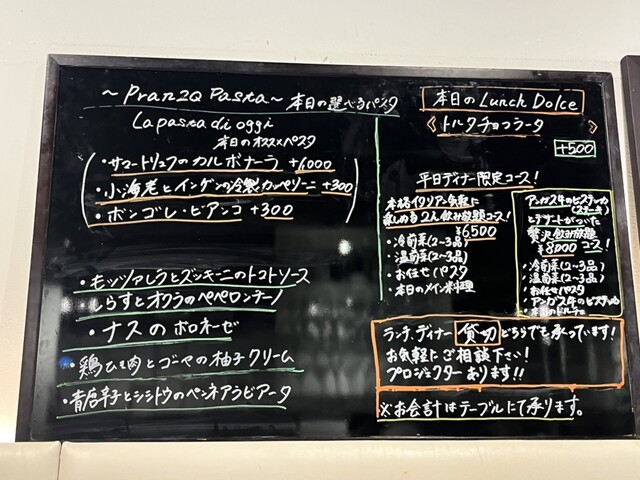 ～Pranzo Pasta～本日の選べるパスタ
La pasta di oggi
本日のオススメパスタ
・サマートリュフのカルボナーラ +6000
・小海老とインゲンの冷製カッペリーニ +300
・ボンゴレ・ビアンコ +300
・モッツァレラとズッキーニのトマトソース
しらすとオクラのペペロンチーノ
・ナスのボロネーゼ
・鶏ひき肉とゴーヤの柚子クリーム
・青唐辛子とシシトウのペンネアラビアータ
本日のLunch Dolce
《トルタチョコラータ》
+500
平日ディナー限定コース!
本格イタリアン気軽に
楽しめる2h飲み放題コース!
¥6500
・冷前菜(2～3品)
・温前菜(2～3品)
・お任せパスタ
・本日のメイン料理
アンガス牛のビステッカ
(ステーキ)
とデザートがついた
贅沢飲み放題
¥8000コース!
・冷前菜(2～3品)
・温前菜(2～3品)
・お任せパスタ
・アンガス牛のビステッカ
・本日のドルチェ
ランチ、ディナー 貸切 どちらでも承っています!
お気軽にご相談下さい!
プロジェクターあります!!
※お会計はテーブルにて承ります。